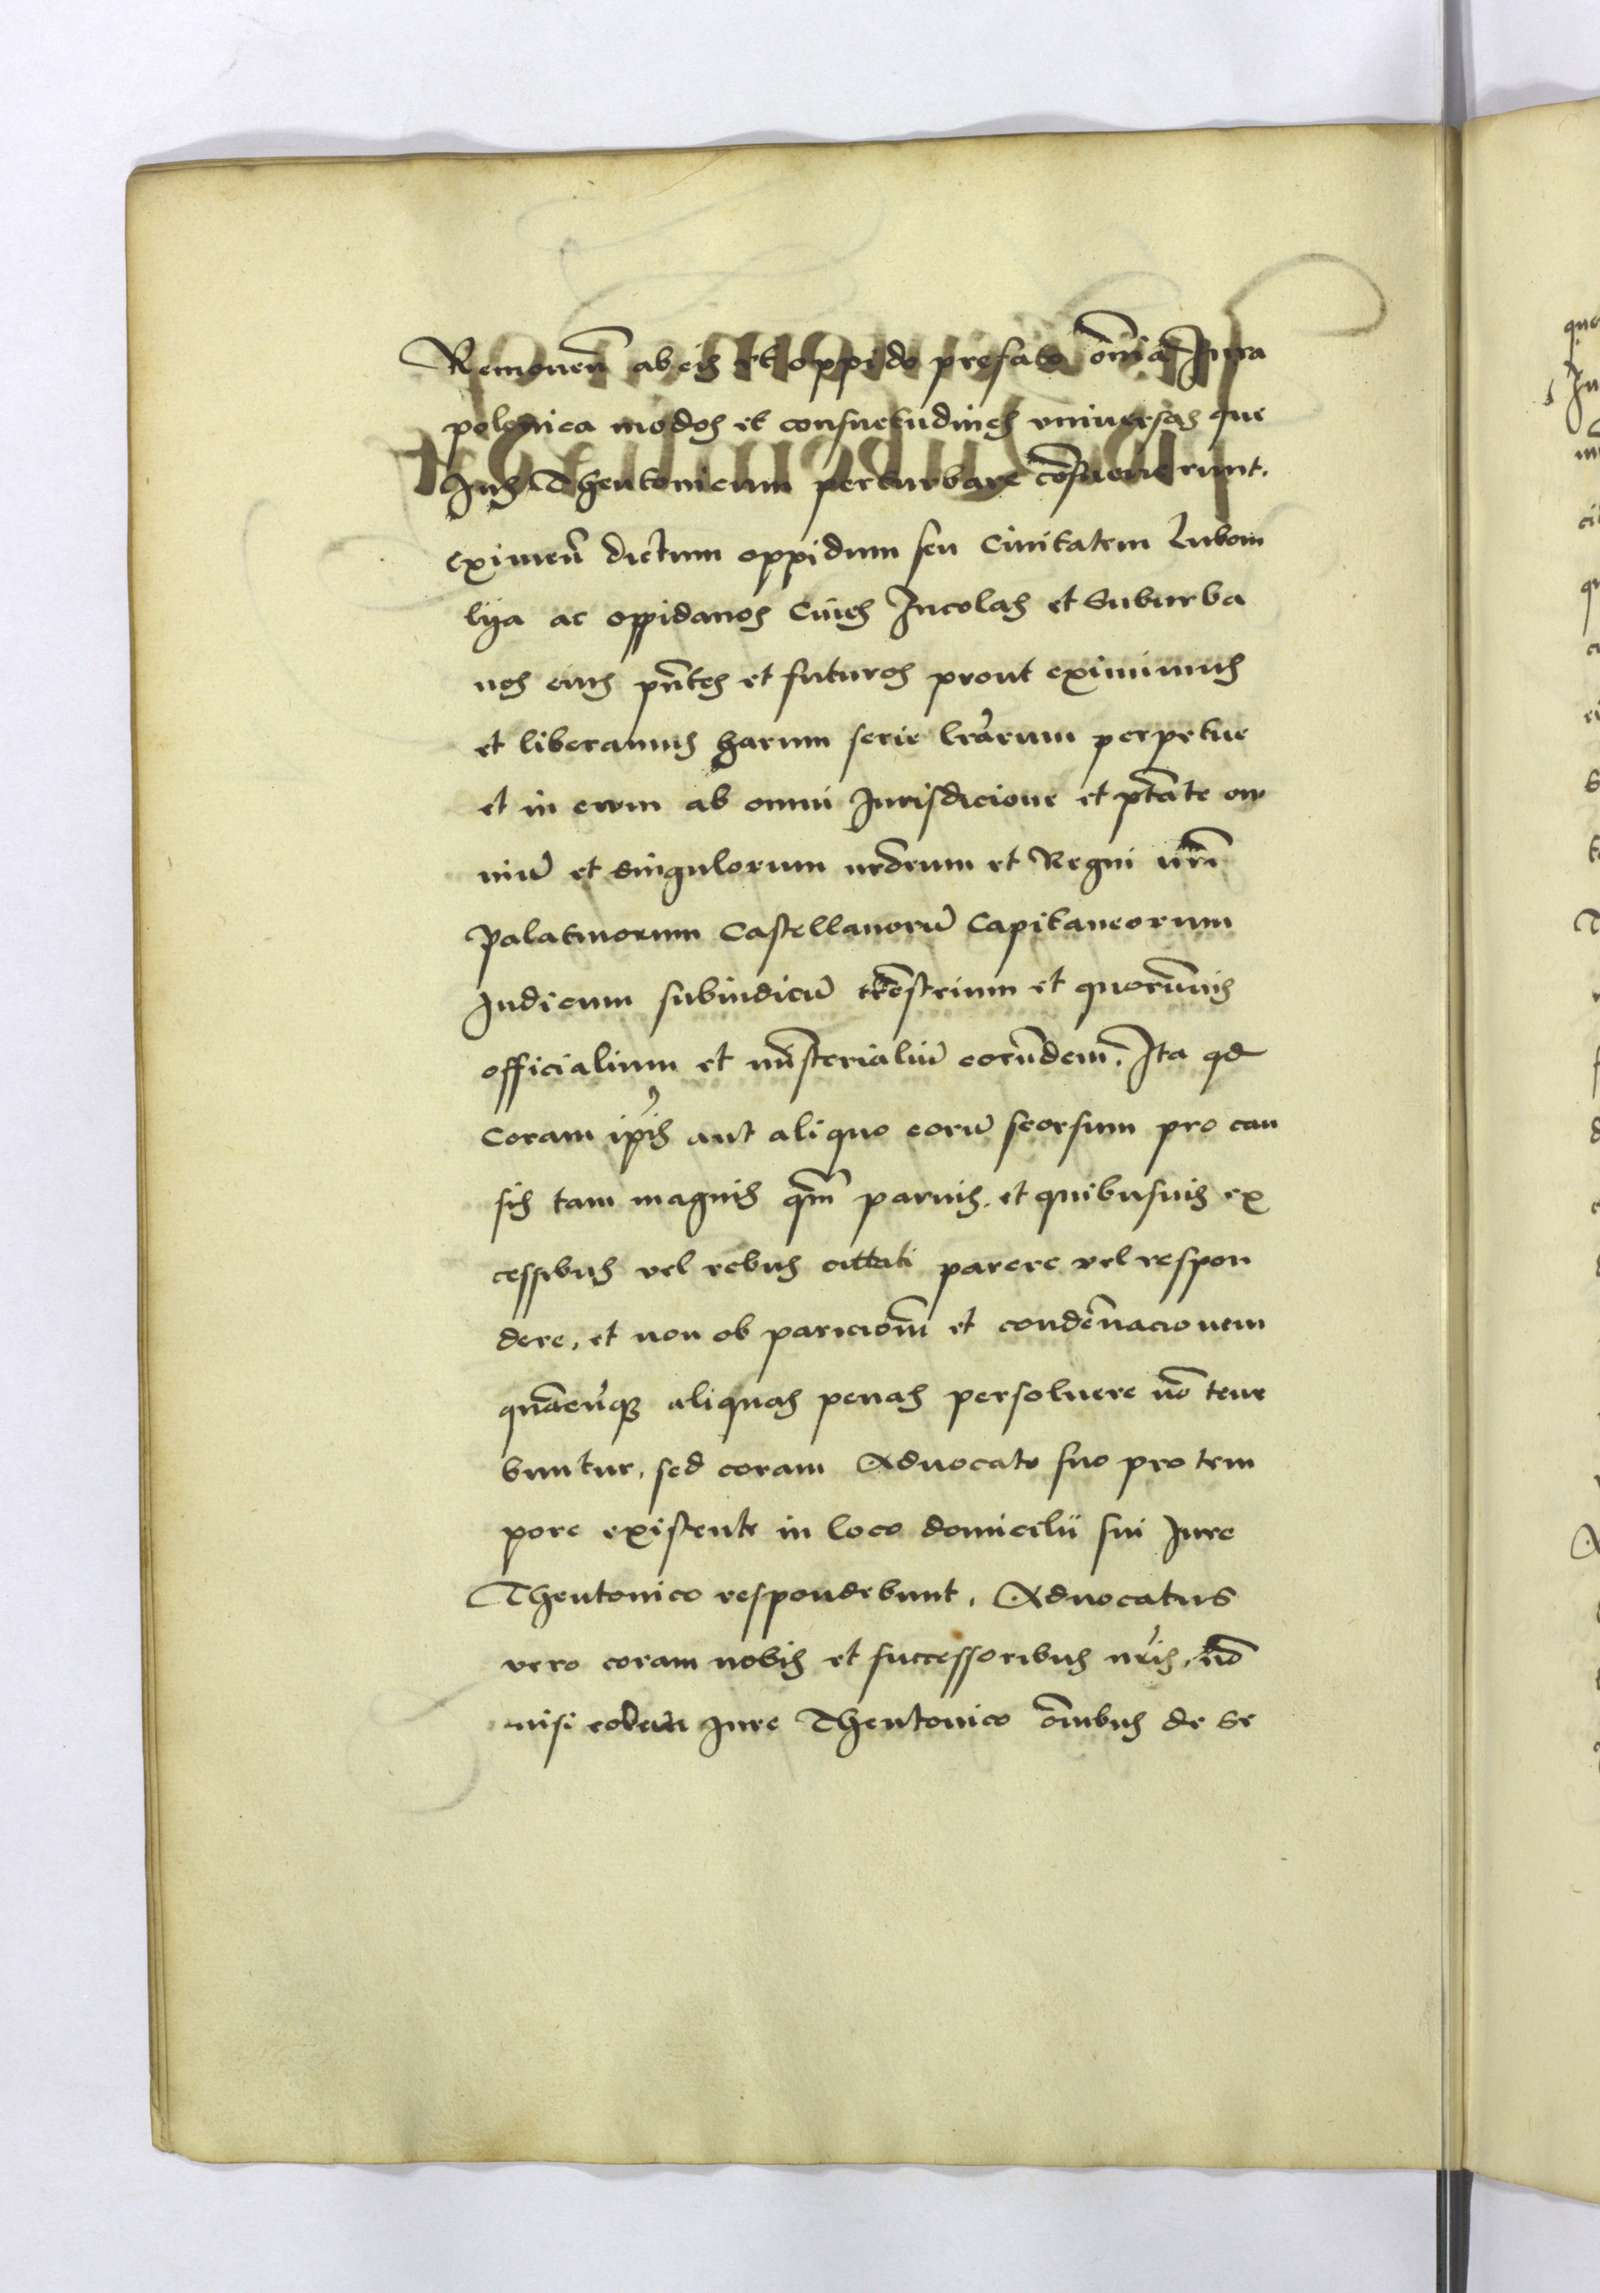 Remouen̄ ab eis et oppido prefato om̄ia Jura
polonica modos et consuetudines vniuersas que
Jus Theutonicum perturbare cōsueuerunt.
eximen̄ dictum oppidum seu Ciuitatem Lubom
lija ac oppidanos Ciues Jncolas et Suburba
nos eius pn̄tes et futuros prout eximimus
et liberamus harum serie lr̄arum perpetue
et in ewm ab omni Jurisdicione et ptāte om
niū et Singulorum nr̄orum et Regni nr̄i
Palatinorum Castellanorū Capitaneorum
Judicum subiudicū tr̄estrium et quorūuis
officialium et mīsterialiū eorūdem. Jta qd
Coram ip̄is aut aliquo eorū seorsum pro cau
sis tam magnis qm̄ paruis. et quibusuis ex
cessibus vel rebus cittati parere vel respon
dere, et non ob pariciom̄ et condēnacionem
quācūq3 aliquas penas persoluere nō tene
buntur, sed coram Aduocato suo pro tem
pore existente in loco domicilii sui Jure
Theutonico respondebunt, Aduocatus
vero coram nobis et successoribus nr̄is, nō
nisi eodem Jure Theutonico om̄ibus de se